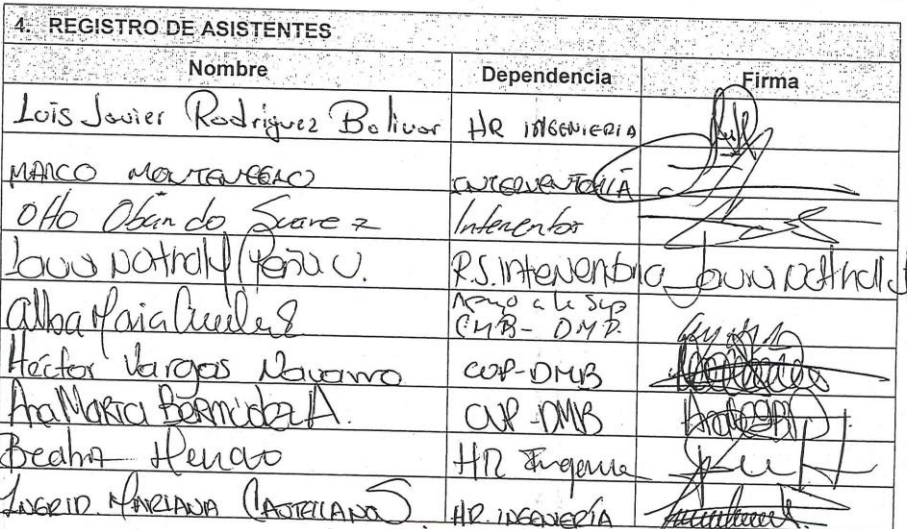 4. REGISTRO DE ASISTENTES
Nombre Dependencia Firma
Lois Javier Rodriguez Bolivar HR INGENIERIA
MARCO MONTENEGRO INTERVENTORIA
Otto Obando Suarez Interventor
Nathaly Peña U. R.S. Interventoria Nathaly
Alba Apoyo a la Sup
CMB - DMB
Héctor Vargas Navarro COP-DMB
Ana Maria Bermúdez A. CUP-DMB
Henao HR Ingenie
INGRID MARIANA CASTELLANOS HR INGENIERÍA